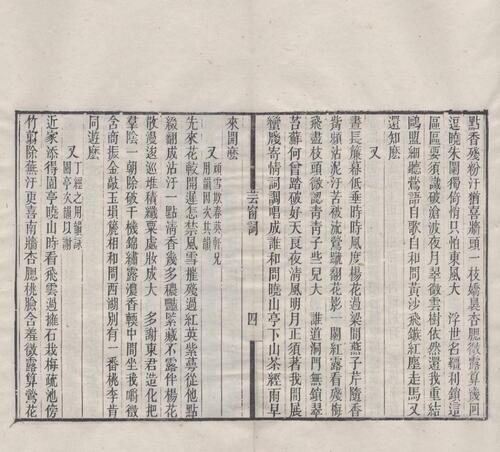 點香殘粉汙猶喜牆頭一枝嬌㬢杏腮微露算幾回
逗曉朱闌獨倚悄只怕東風大　浮世名韁利鎖這
區區要須識破滄波夜月翠微雲樹依然還我重結
鷗盟細聽鶯語自歌自和問黃沙飛鏃紅塵走馬又
還知麽
又
晝長簾幕低垂時時風度楊花過梁間燕子芹隨香
觜頻沾泥汙苦被流鶯蹴翻花影一闌紅露看殘梅
飛盡枝頭微認青青子些兒大　誰道洞門無鎖翠
苔蘚何曾踏破好天良夜清風明月正須著我閒展
蠻牋寄情詞調唱成誰和問曉山亭下山茶經雨早
來開麽
又
頭雪欺春英軒兄
用韻因夫共韻
先來花較開遲怎禁風雪摧殘過紅英紫萼從他點
綴翻成沾汙一點清香幾多穠豔緊藏不露伴楊花
散漫逡巡堆積纖粟處妝成大　多謝東君造化把
羣陰一朝除破千機錦繡露濃香輭中間坐我嚼徵
含商振金敲玉塤箎相和問西湖別有一番桃李肯
同遊麽
又
丁經之用韻詠
園亭次韻以謝
近家添得園亭曉山時看飛雲過擁石栽梅疏池傍
竹剪除蕪汙更喜南牆杏腮桃臉含羞微露算鶯花
芸窗詞
四